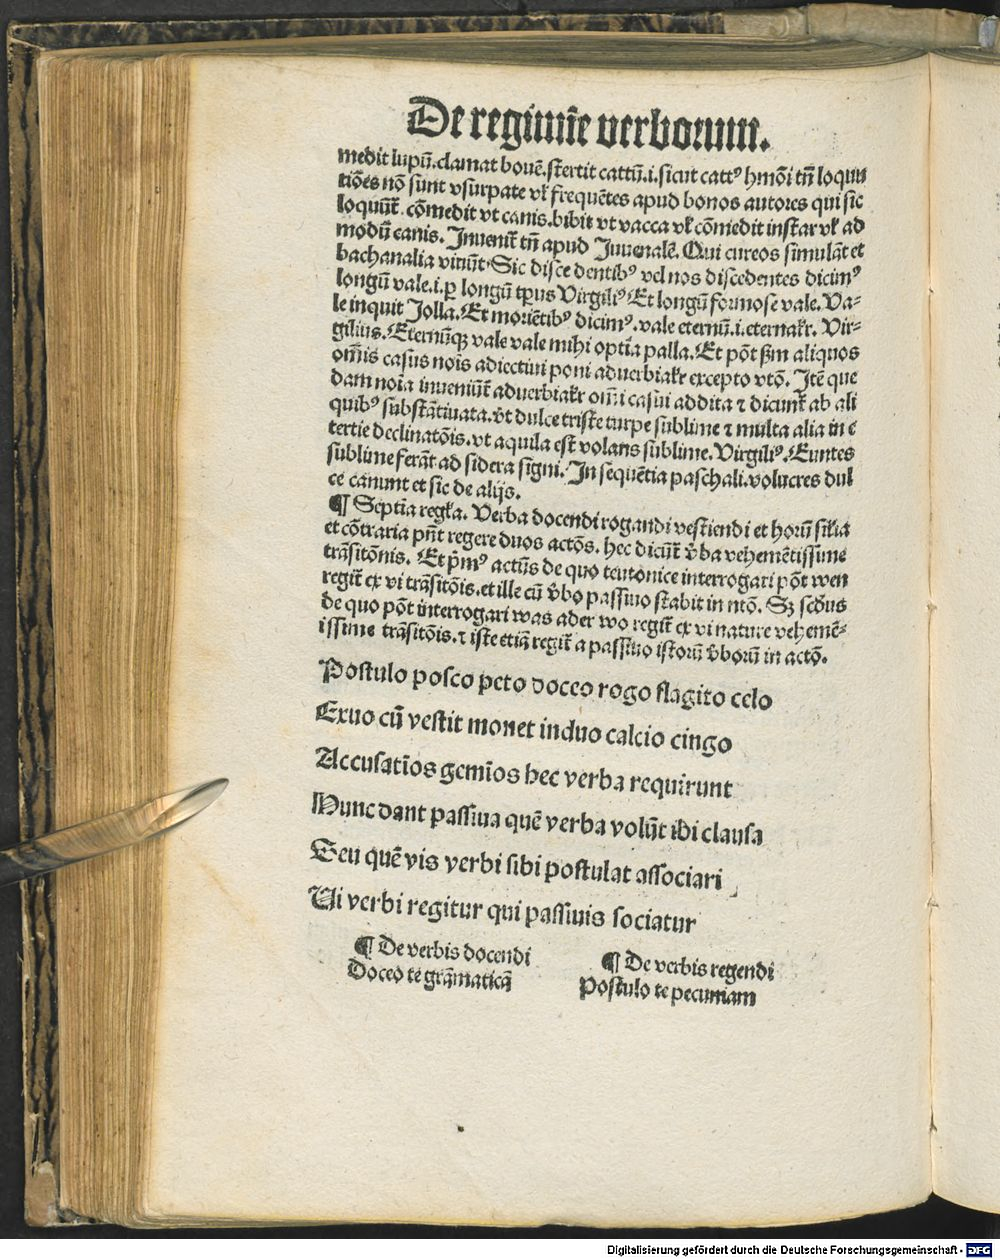 De regimīe verborum.
medit lupū. clamat bovē. stertit cattū. i. sicut cattꝰ hmōi tn̄ loqun
tiōes nō sunt vsurpate vl' frequētes apud bonos autores qui sic
loquūt᷑. cōmedit vt canis. bibit vt vacca vl' cōmedit instar vl' ad
modū canis. Invenit᷑ tn̄ apud Juvenalē. Qui cureos simulāt et
bachanalia viuūt. Sic disce dentibꝰ vel nos discedentes dicimꝰ
longū vale. i. ꝑ longū tp̄us Virgiliꝰ Et longū formose vale. Va-
le inquit Jolla. Et moriētibꝰ dicimꝰ. vale eternū. i. eternalr̄. Vir-
gilius. Eternūqꝫ vale vale mihi optīa palla. Et pōt ẜm aliquos
om̄is casus nois adiectiui poni aduerbialr̄ excepto vtō. Itē que
dam noīa inveniūt᷑ aduerbialr̄ om̄i casui addita ⁊ dicunt᷑ ab ali
quibꝰ substātiuata. vt dulce triste turpe sublime ⁊ multa alia in e
tertie declinatōis. vt aquila est volans sublime. Virgiliꝰ. Euntes
sublime ferāt ad sidera signi. In sequētia paschali. volucres dul
ce canunt et sic de alijs.
¶ Septīa regl̄a. Verba docendi rogandi vestiendi et horū sil̄ia
et cōtraria pn̄t regere duos actōs. hec dicūt᷑ v̄ba vehemētissime
trāsitōnis. Et pm̄ꝰ actūs de quo teutonice interrogari pōt wen
regit᷑ ex vi trāsitōis. et ille cū v̄bo passiuo stabit in ntō. Sꝫ scd̄us
de quo pōt interrogari was ader wo regit᷑ ex vi nature vehemē-
issime trāsitōis. ⁊ iste etiā regit᷑ a passiuo istorū v̄borū in actō.
Postulo posco peto doceo rogo flagito celo
Exuo cū vestit monet induo calcio cingo
Accusatīos gemīos hec verba requirunt
Nunc dant passiua quē verba volūt ibi clausa
Seu quē vis verbi sibi postulat associari
Vi verbi regitur qui passiuis sociatur
¶ De verbis docendi
Doceo te grāmaticā
¶ De verbis regendi
Postulo te pecuniam
Digitalisierung gefördert durch die Deutsche Forschungsgemeinschaft - DFG